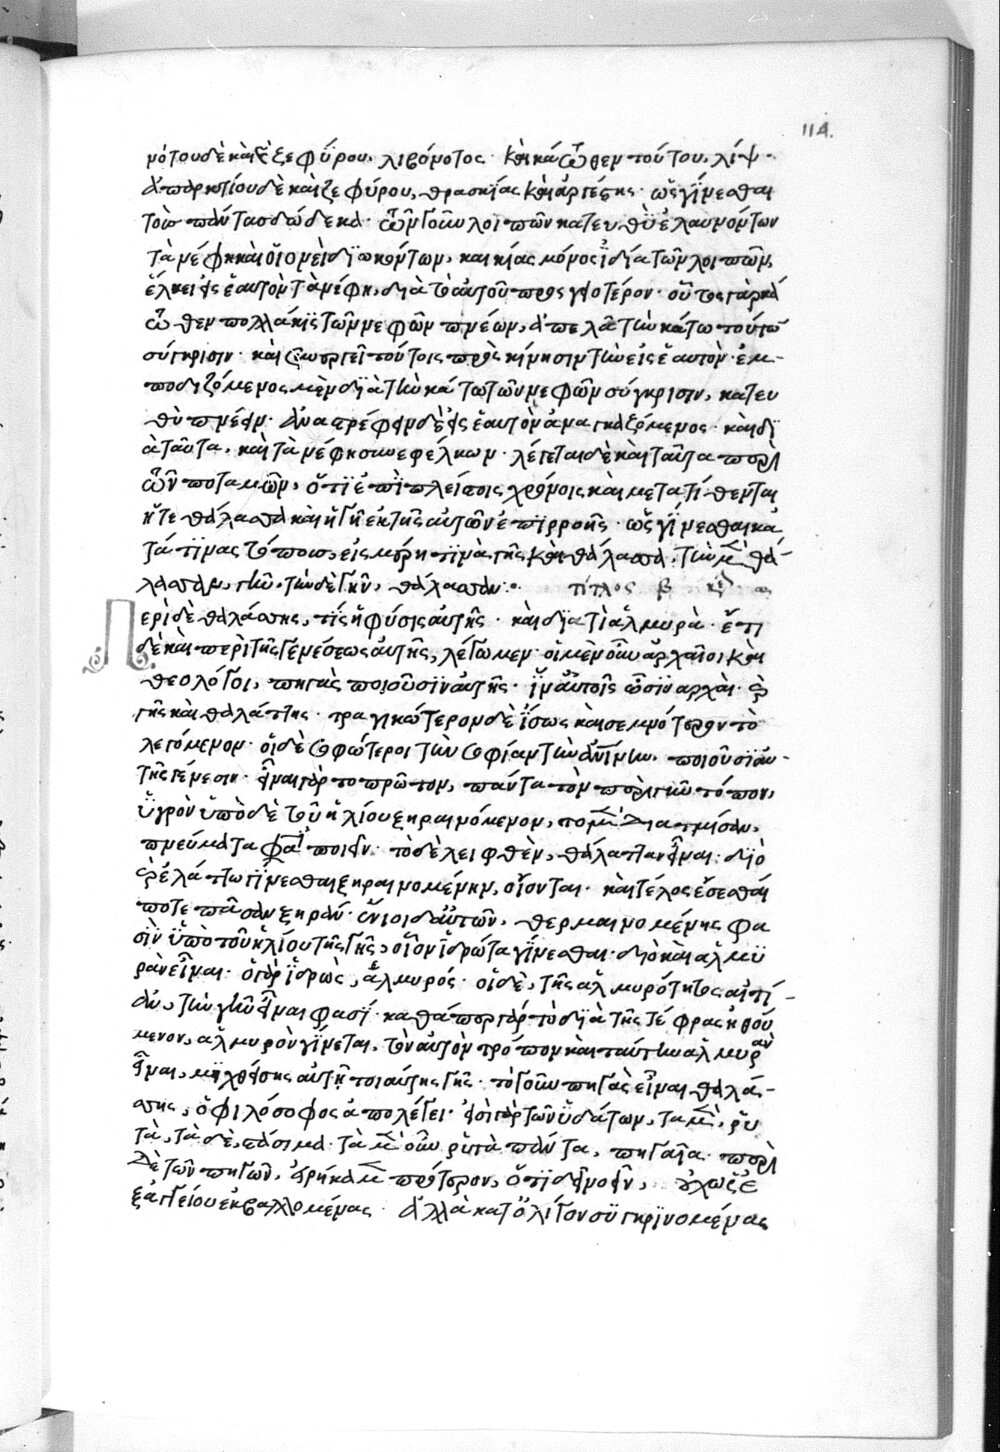 114.
νότου δὲ καὶ ζεφύρου, λιβόνοτος. καὶ κάτωθεν τούτου, λίψ.
ἀπαρκτίου δὲ καὶ ζεφύρου, θρασκίας καὶ ἀργέστης. ὡς γίνεσθαι
τοὺς πάντας δώδεκα. ὧν γοῦν λοιπῶν κατευθὺ ἐλαυνόντων
τὰ νέφη καὶ οἱονεὶ διωκόντων, καικίας μόνος ἰδία τῶν λοιπῶν,
ἕλκει εἰς ἑαυτὸν τὰ νέφη, διὰ τὸ αὐτοῦ πρὸς γεοτέρον. οὗτος γὰρ κά
τωθεν πολλάκις τῶν νεφῶν πνέων, ἀπελᾶ τὴν κάτω τούτων
σύγκρισιν. καὶ συνεργεῖ τούτοις πρὸς κίνησιν τὴν εἰς ἑαυτόν. ἐμ-
ποδιζόμενος μὲν διὰ τὴν κάτω τῶν νεφῶν σύγκρισιν, κατευ
θὺ πνέειν. ἀναστρέφειν δὲ εἰς ἑαυτὸν ἀναγκαζόμενος. καὶ δι
ὰ ταῦτα, καὶ τὰ νέφη συνεφέλκων. λέγεται δὲ καὶ ταῦτα περὶ
τῶν ποταμῶν, ὅτι ἐπὶ πλείστοις χρόνοις καὶ μετατίθενται
ἥ τε θάλασσα καὶ ἡ γῆ ἐκ τῆς αὐτῶν ἐπιρροῆς. ὡς γίνεσθαι κα
τά τινας τόπους, εἰς μέρη τινὰ γῆς καὶ θάλασσα, τὴν μὲν θά-
λασσαν, γῆν, τὴν δὲ γῆν, θάλασσαν: τίτλος β κεφ α
Περὶ δὲ θαλάσσης, τίς ἡ φύσις αὐτῆς. καὶ διατί ἁλμυρὰ. ἔτι
δὲ καὶ περὶ τῆς γενέσεως αὐτῆς, λέγωμεν. οἱ μὲν οὖν ἀρχαῖοι καὶ
θεολόγοι, πηγὰς ποιοῦσιν αὐτῆς. ἵν' αὐτοῖς ὦσιν ἀρχαὶ
γῆς καὶ θαλάττης. τραγικώτερον δὲ ἴσως καὶ σεμνότερον τὸ
λεγόμενον. οἱ δὲ σοφώτεροι τὴν σοφίαν τὴν ἀνθρωπίνην, ποιοῦσιν αὐ-
τῆς γένεσιν. εἶναι γὰρ τὸ πρῶτον, πάντα τὸν περὶ γῆν τόπον,
ὑγρὸν ὑπὸ δὲ τοῦ ἡλίου ξηραινόμενον, τὸ μὲν διατμίσαν,
πνεύματά φασι ποιεῖν. τὸ δὲ λειφθὲν, θάλατταν εἶναι. διὸ
καὶ ἐλάττω γίνεσθαι ξηραινομένην, οἴονται. καὶ τέλος ἔσεσθαί
ποτε πᾶσαν ξηράν. ἔνιοι δ' αὐτῶν, θερμαινομένης φα
σὶν ὑπὸ τοῦ ἡλίου τῆς γῆς, οἷον ἱδρῶτα γίνεσθαι. διὸ καὶ ἁλμυ
ρὰν εἶναι. ὁ γὰρ ἱδρὼς, ἁλμυρός. οἱ δὲ, τῆς ἁλμυρότητος αἰτί-
αν, τὴν γῆν εἶναι φασί. καθάπερ γὰρ τὸ διὰ τῆς τέφρας ἠθού
μενον, ἁλμυρὸν γίνεται, τὸν αὐτὸν τρόπον καὶ ταύτην ἁλμυρὰν
εἶναι, μιχθείσης αὐτῇ τοιαύτης γῆς. τὸ γοῦν πηγὰς εἶναι θαλά-
σσης, ὁ φιλόσοφος ἀπολέγει. ἐπεὶ γὰρ τῶν ὑδάτων, τὰ μὲν, ῥυ
τὰ, τὰ δὲ, στάσιμα. τὰ μὲν οὖν ῥυτὰ πάντα, πηγαῖα. περὶ
δὲ τῶν πηγῶν, εἰρήκαμεν πρότερον, ὅτι δεῖ νοεῖν, οὐχ ὡς ἐ
ξ ἀγγείου ἐκβαλλομένας. ἀλλὰ κατ' ὀλίγον συγκρινομένας